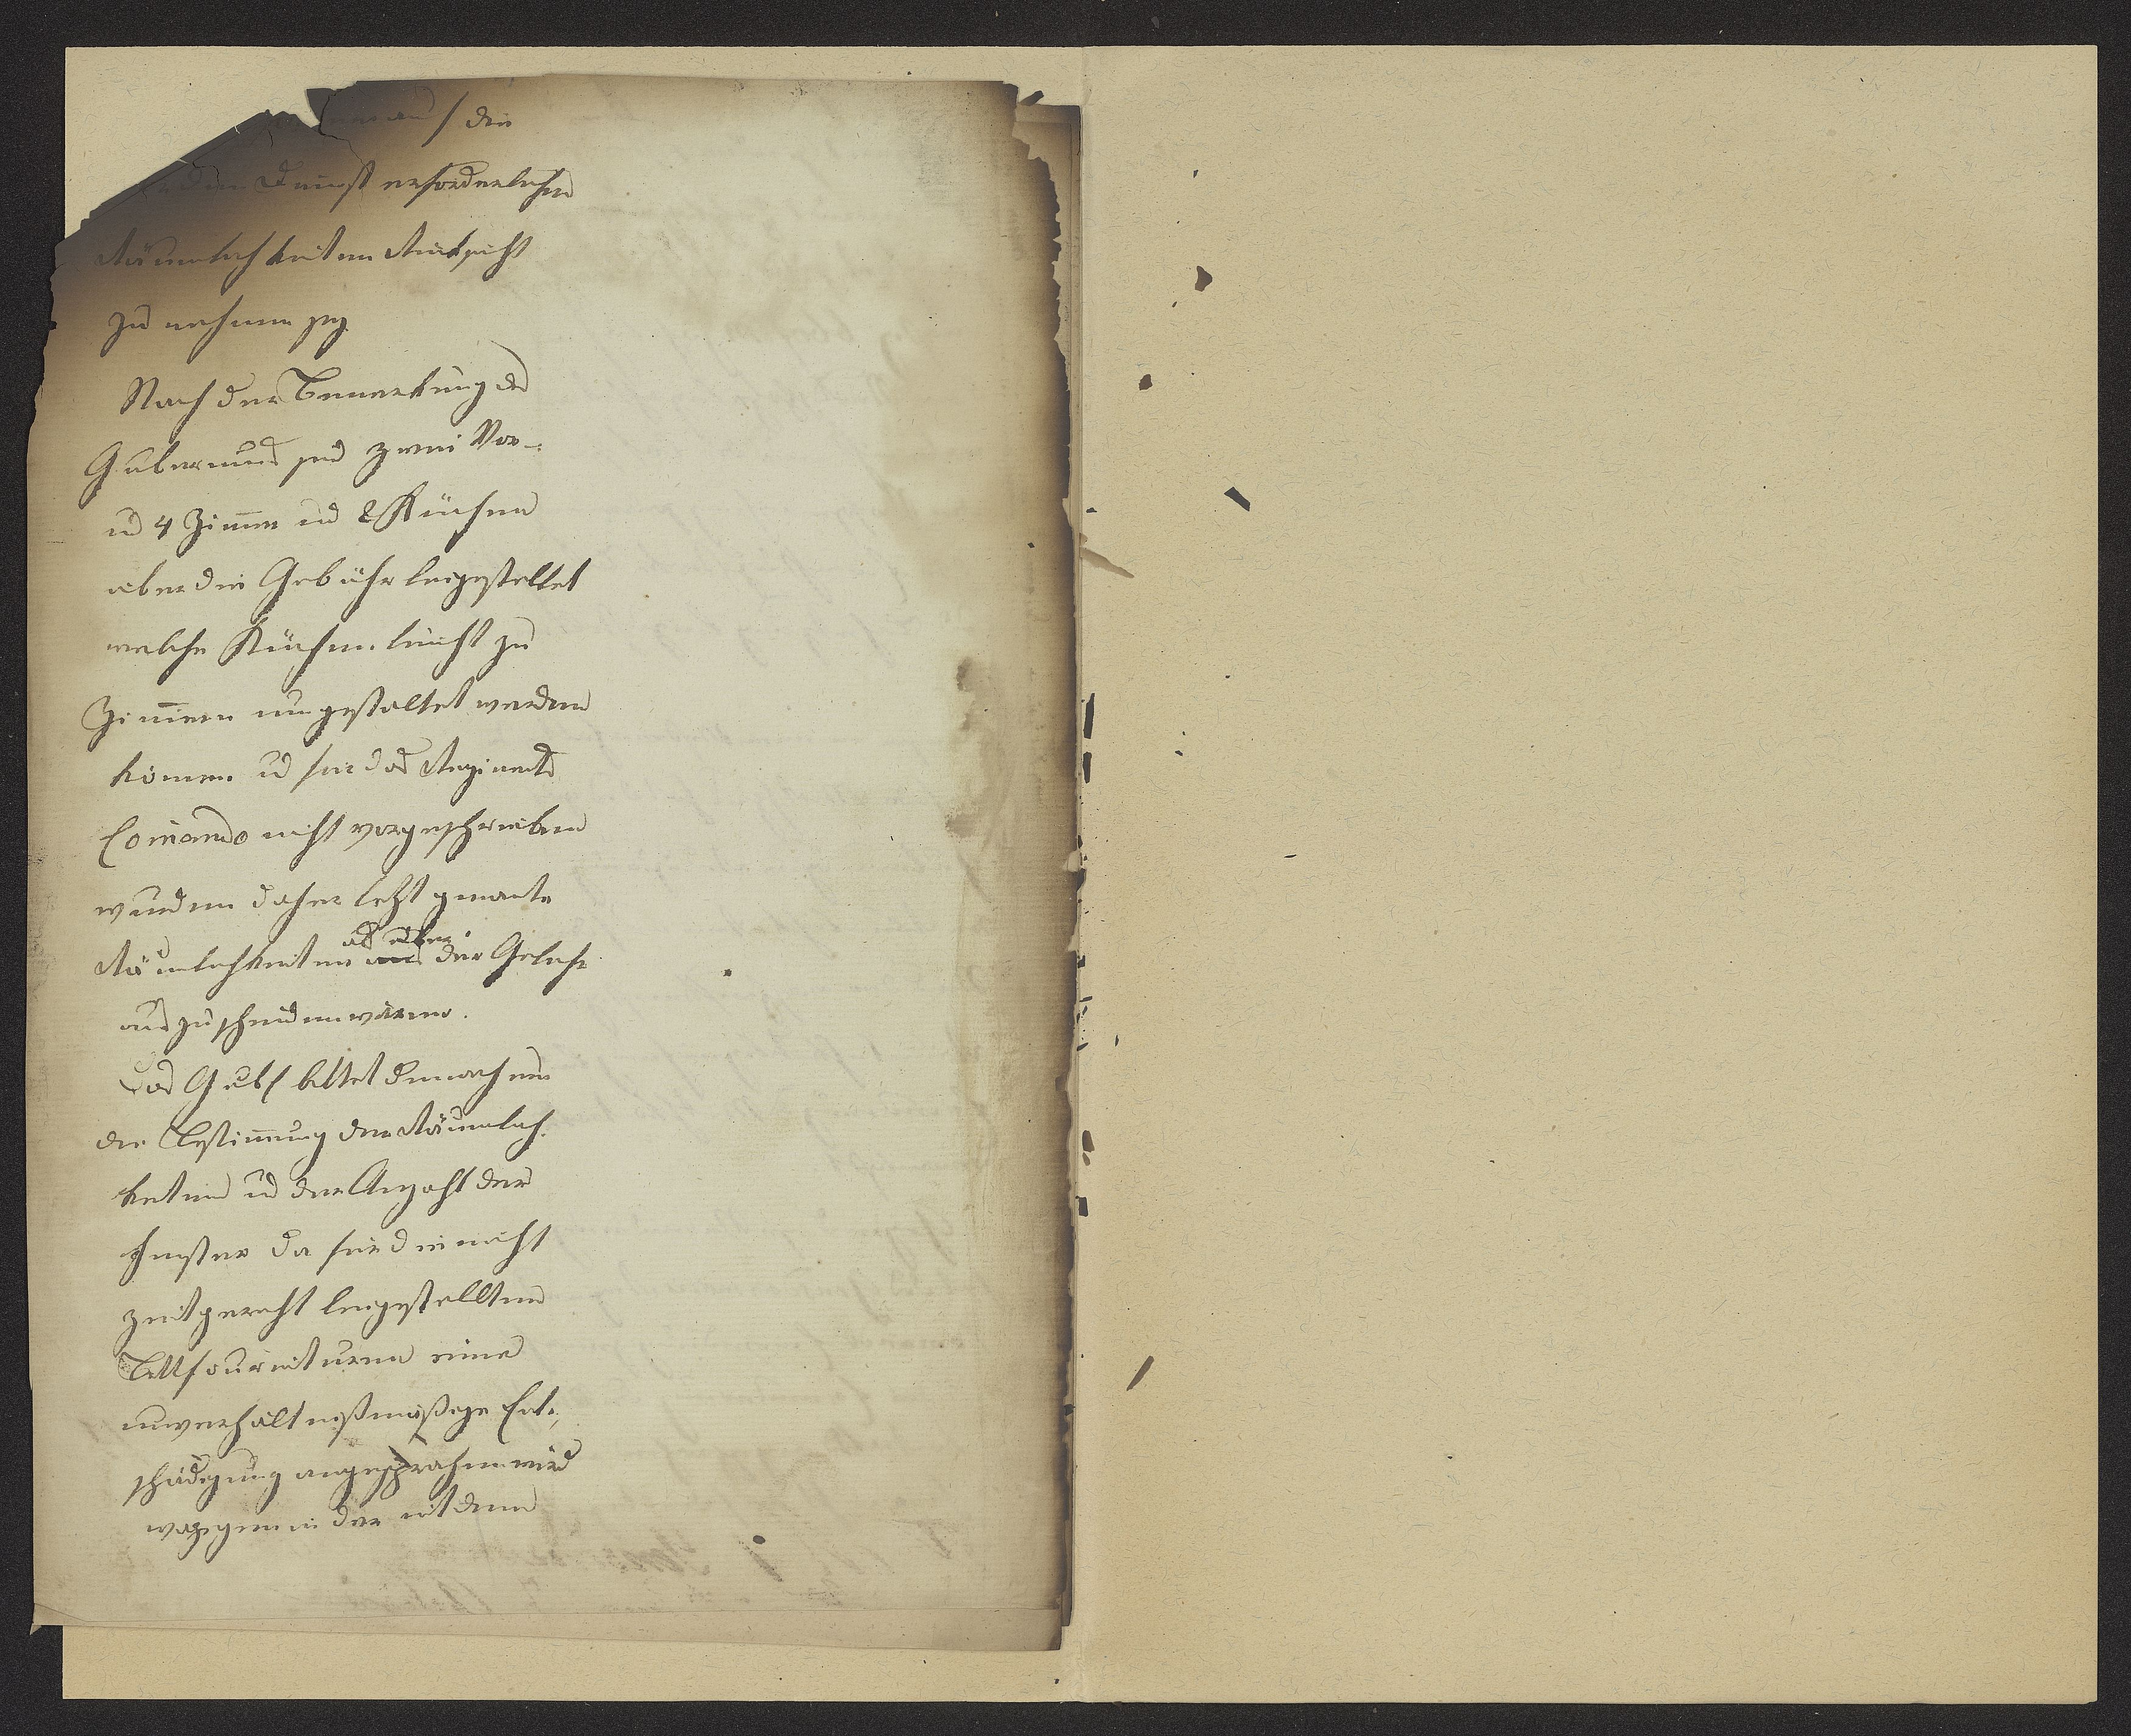 auf die
den Dienst erforderlichen
Räumlichkeiten Rücksicht
zu nehmen sey.
Nach der Bemerkung des
Guberniums sind zwei Vor-
und 4 Zimmer und 2 Küchen
über die Gebühr beigestellet
welche Küchen leicht zu
Zimmern umgestaltet werden
können und für das Regiments
Comando nicht vorgeschrieben
wurden daher letzt genante
Räumlichkeiten als über der Gebühr
auszuscheiden wären.
Das Gub bittet demnach um
die Bestimung der Räumlich-
keiten und der Anzahl der
Fenster da für die nicht
zeitgerecht beigestellten
Bettfournituren eine
unverhältnißmäßige Ent-
schädigung angesprochen wird
wogegen in der mit dem